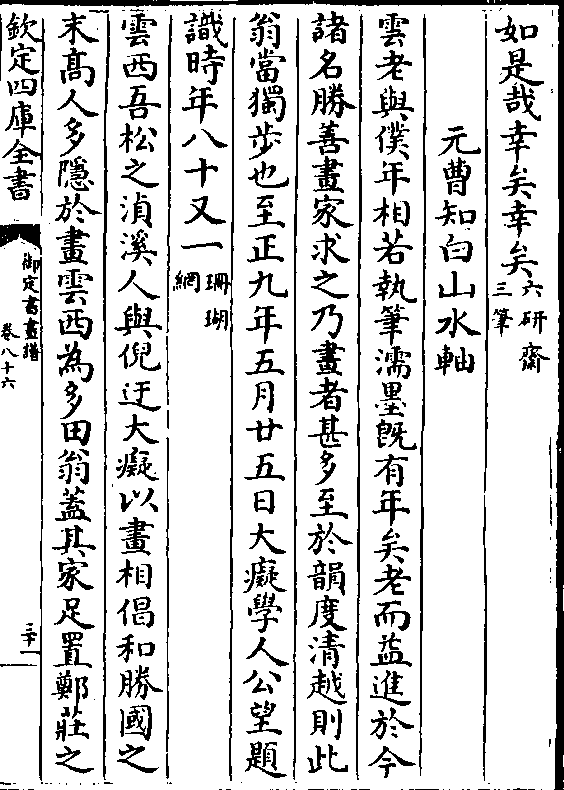 如是哉幸矣幸矣六研齋三筆
元曹知白山水軸
雲老與僕年相若執筆濡墨旣有年矣老而益進於今
諸名勝善畫家求之乃畫者甚多至於韻度清越則此
翁當獨步也至正九年五月廿五日大癡學人公望題
識時年八十又一珊瑚網
雲西吾松之湞溪人與倪迂大癡以畫相倡和勝國之
末髙人多隱於畫雲西為多田翁蓋其家足置鄭莊之
欽定四庫全書
御定書畫譜
卷八十六
三十一